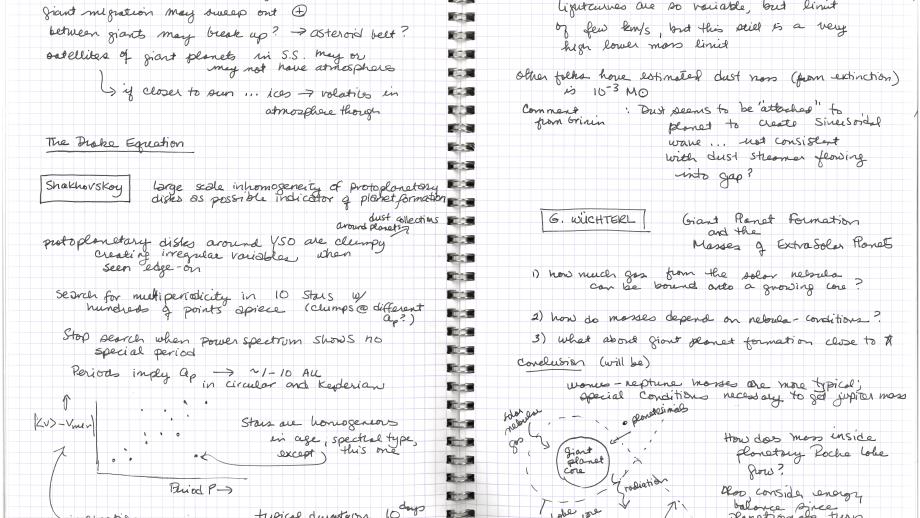 giant migration may sweep out ⊕
between giants may break up? → asteroid belt?
satellites of giant planets in S.S. may or
may not have atmosphere
↳ if closer to sun ... ices → volatiles in
atmosphere though
The Drake Equation
Shakhovskoy
large scale inhomogeneity of protoplanetary
disks as possible indicator of planet formation
dust collections
around planets
protoplanetary disks around YSO are clumpy
creating irregular variables when
seen edge-on
search for multiperiodicity in 10 stars w/
hundreds of points apiece (clumps @ different
ap?)
Stop search when power spectrum shows no
special period
Periods imply ap → ~1-10 AU
in circular and Keplerian
|<v>-Vmin|
Stars are homogenous
in age, spectral type,
except this one
Period P →
typical duration 10 days
lightcurves are so variable, but limit
of few km/s, but this still is a very
high lower mass limit
other folks have estimated dust mass (from extinction)
is 10⁻³ M⊙
Comment
from Grinin
: Dust seems to be "attached" to
planet to create sinusoidal
wave ... not consistent
with dust streamer flowing
into gap?
G. WÜCHTERL
Giant Planet Formation
and the
Masses of ExtraSolar Planets
1) how much gas from the solar nebula
can be bound onto a growing core?
2) how do masses depend on nebula-conditions?
3) what about giant planet formation close to ★
Conclusion (will be)
uranus-neptune masses are more typical;
special conditions necessary to get jupiter mass
solar
nebular
gas
planetesimals
giant
planet
core
radiation
How does mass inside
planetary Roche lobe
grow?
Also consider energy
balance since